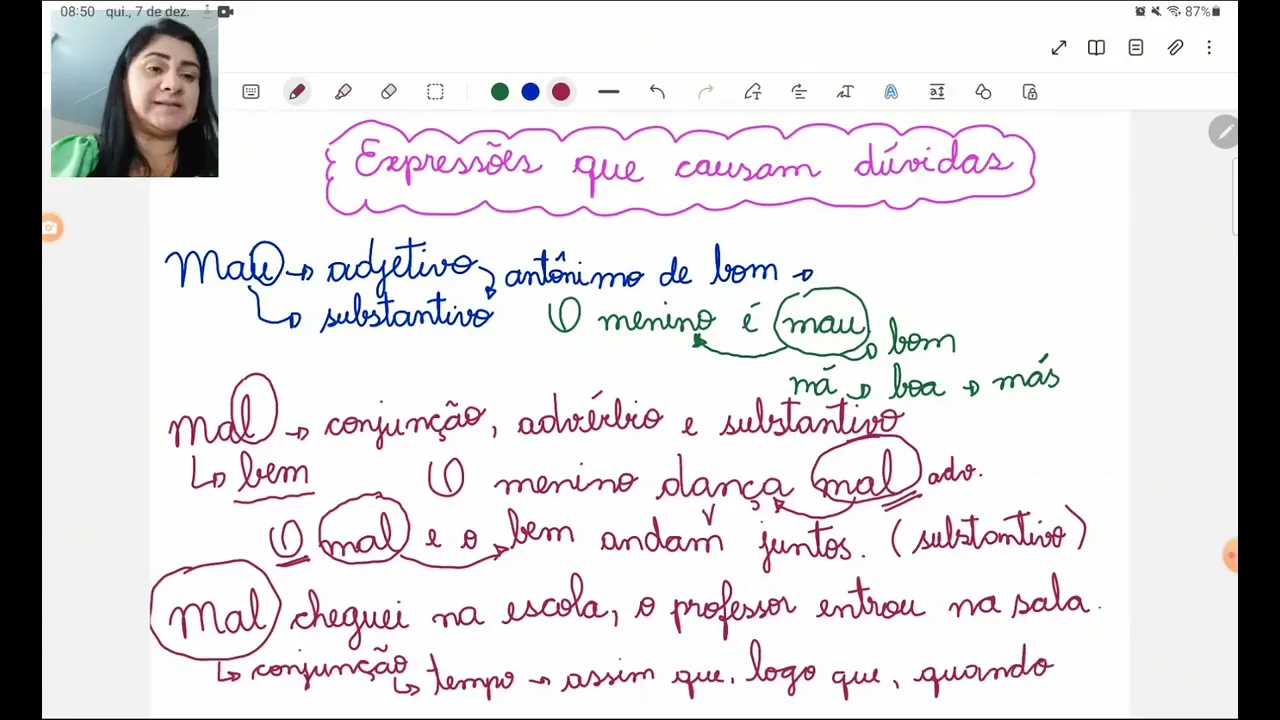 08:50 qui., 7 de dez.
87%
Expressões que causam dúvidas
Mau → adjetivo antônimo de bom →
↳ substantivo O menino é mau
bom
má → boa → más
Mal → conjunção, advérbio e substantivo
↳ bem O menino dança mal adv.
V
O mal e o bem andam juntos. (substantivo)
Mal cheguei na escola, o professor entrou na sala.
↳ conjunção ↳ tempo → assim que, logo que, quando